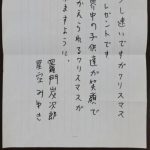 少し速いですがクリスマス
プレゼントです
界中の子供達が笑顔で
かえられるクリスマスが
ますように。
竈門炭次郎
星空みゆき